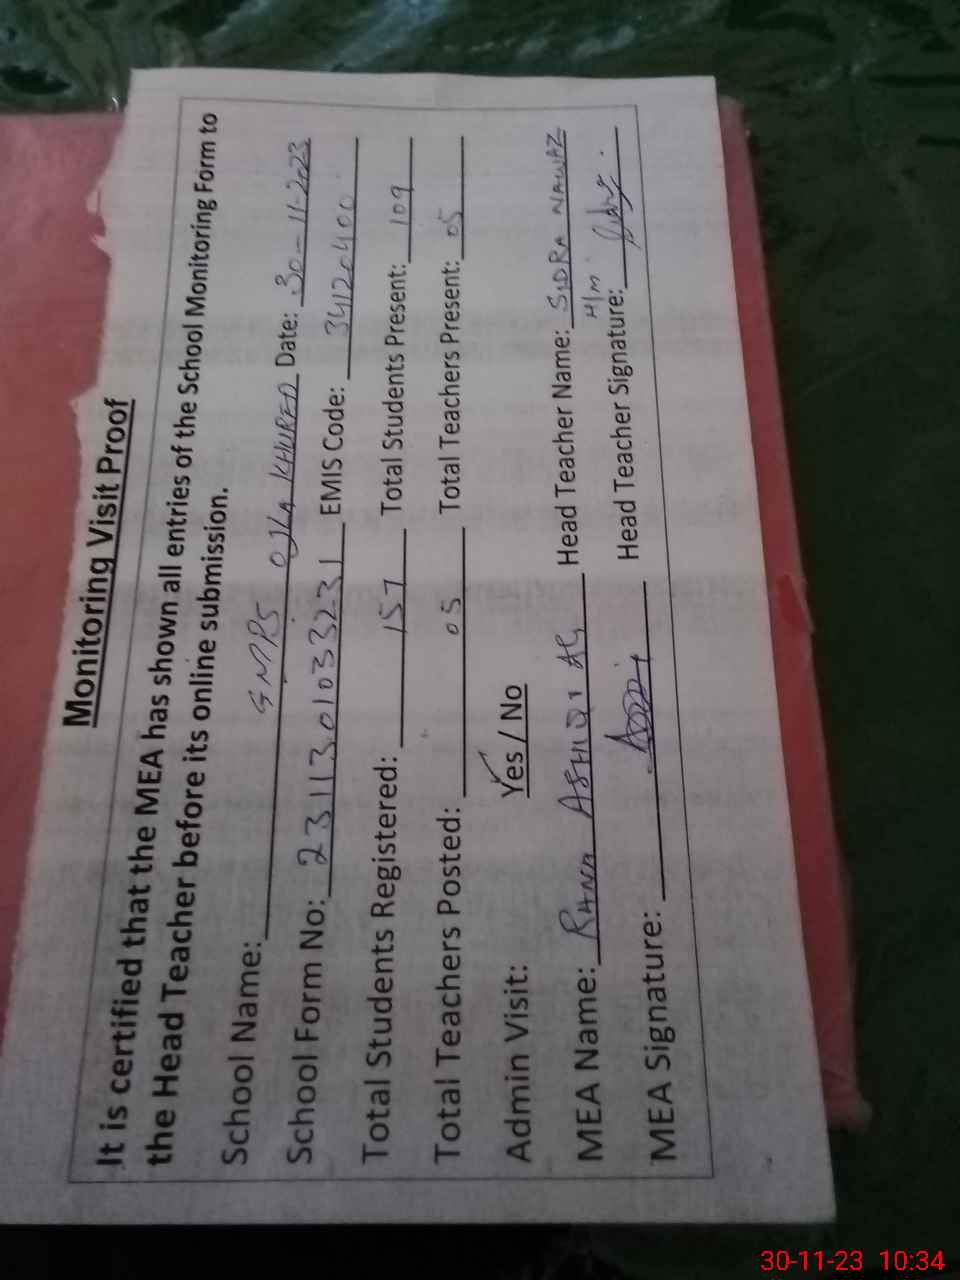 Monitoring Visit Proof
It is certified that the MEA has shown all entries of the School Monitoring Form to
the Head Teacher before its online submission.
School Name: GMPS OJLA KHURED Date: 30-11-2023
School Form No: 231113.01033231 EMIS Code: 34120400
Total Students Registered: 157 Total Students Present: 109
Total Teachers Posted: 05 Total Teachers Present: 05
Admin Visit: Yes / No
MEA Name: RANA ASHIQ Head Teacher Name: SIDRA NAWAZ
H/M
MEA Signature: Head Teacher Signature:
30-11-23 10:34